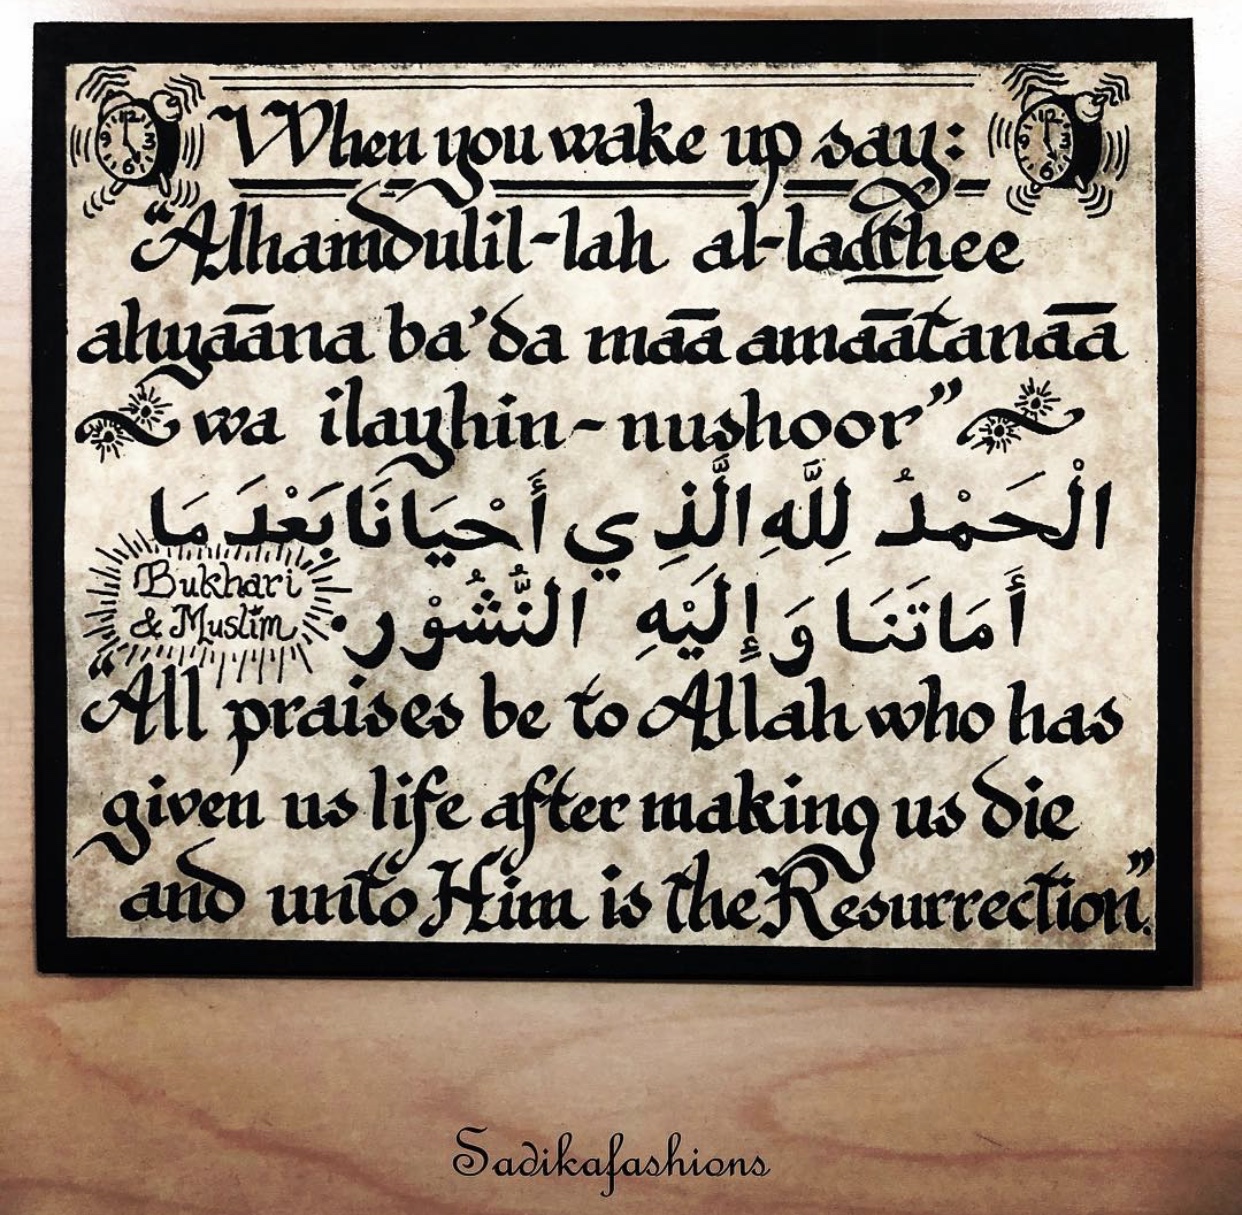 When you wake up say:
"Alhamdulil-lah al-ladthee
ahyaāna ba'da māā amaātanāā
wa ilayhin-nushoor"
الْحَمْدُ لِلَّهِ الَّذِي أَحْيَانَا بَعْدَ مَا
أَمَاتَنَا وَ إِلَيْهِ النُّشُوْر.
Bukhari
& Muslim
"All praises be to Allah who has
given us life after making us die
and unto Him is the Resurrection".
Sadikafashions